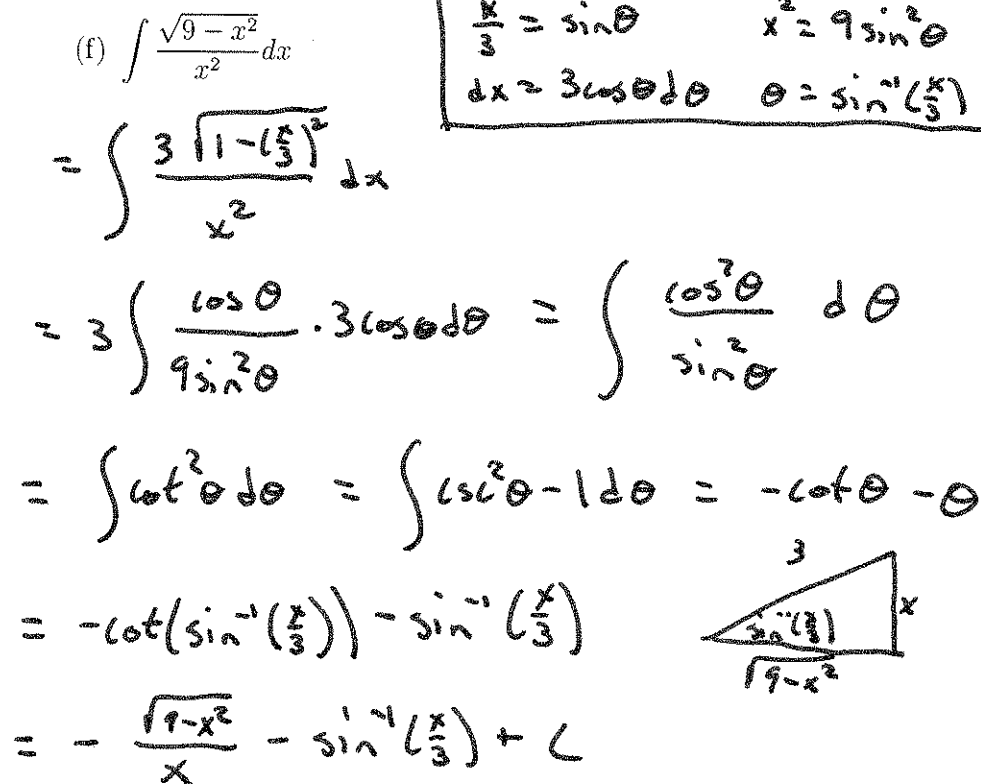 (f) ∫ √(9 − x²) / x² dx
x/3 = sinθ   x² = 9sin²θ
dx = 3cosθdθ   θ = sin⁻¹(x/3)
= ∫ 3√(1 − (x/3)²) / x² dx
= 3 ∫ cosθ / 9sin²θ · 3cosθdθ = ∫ cos²θ / sin²θ dθ
= ∫ cot²θ dθ = ∫ csc²θ − 1 dθ = −cotθ − θ
= −cot(sin⁻¹(x/3)) − sin⁻¹(x/3)
3
x
sin⁻¹(x/3)
√(9−x²)
= − √(9−x²) / x − sin⁻¹(x/3) + C